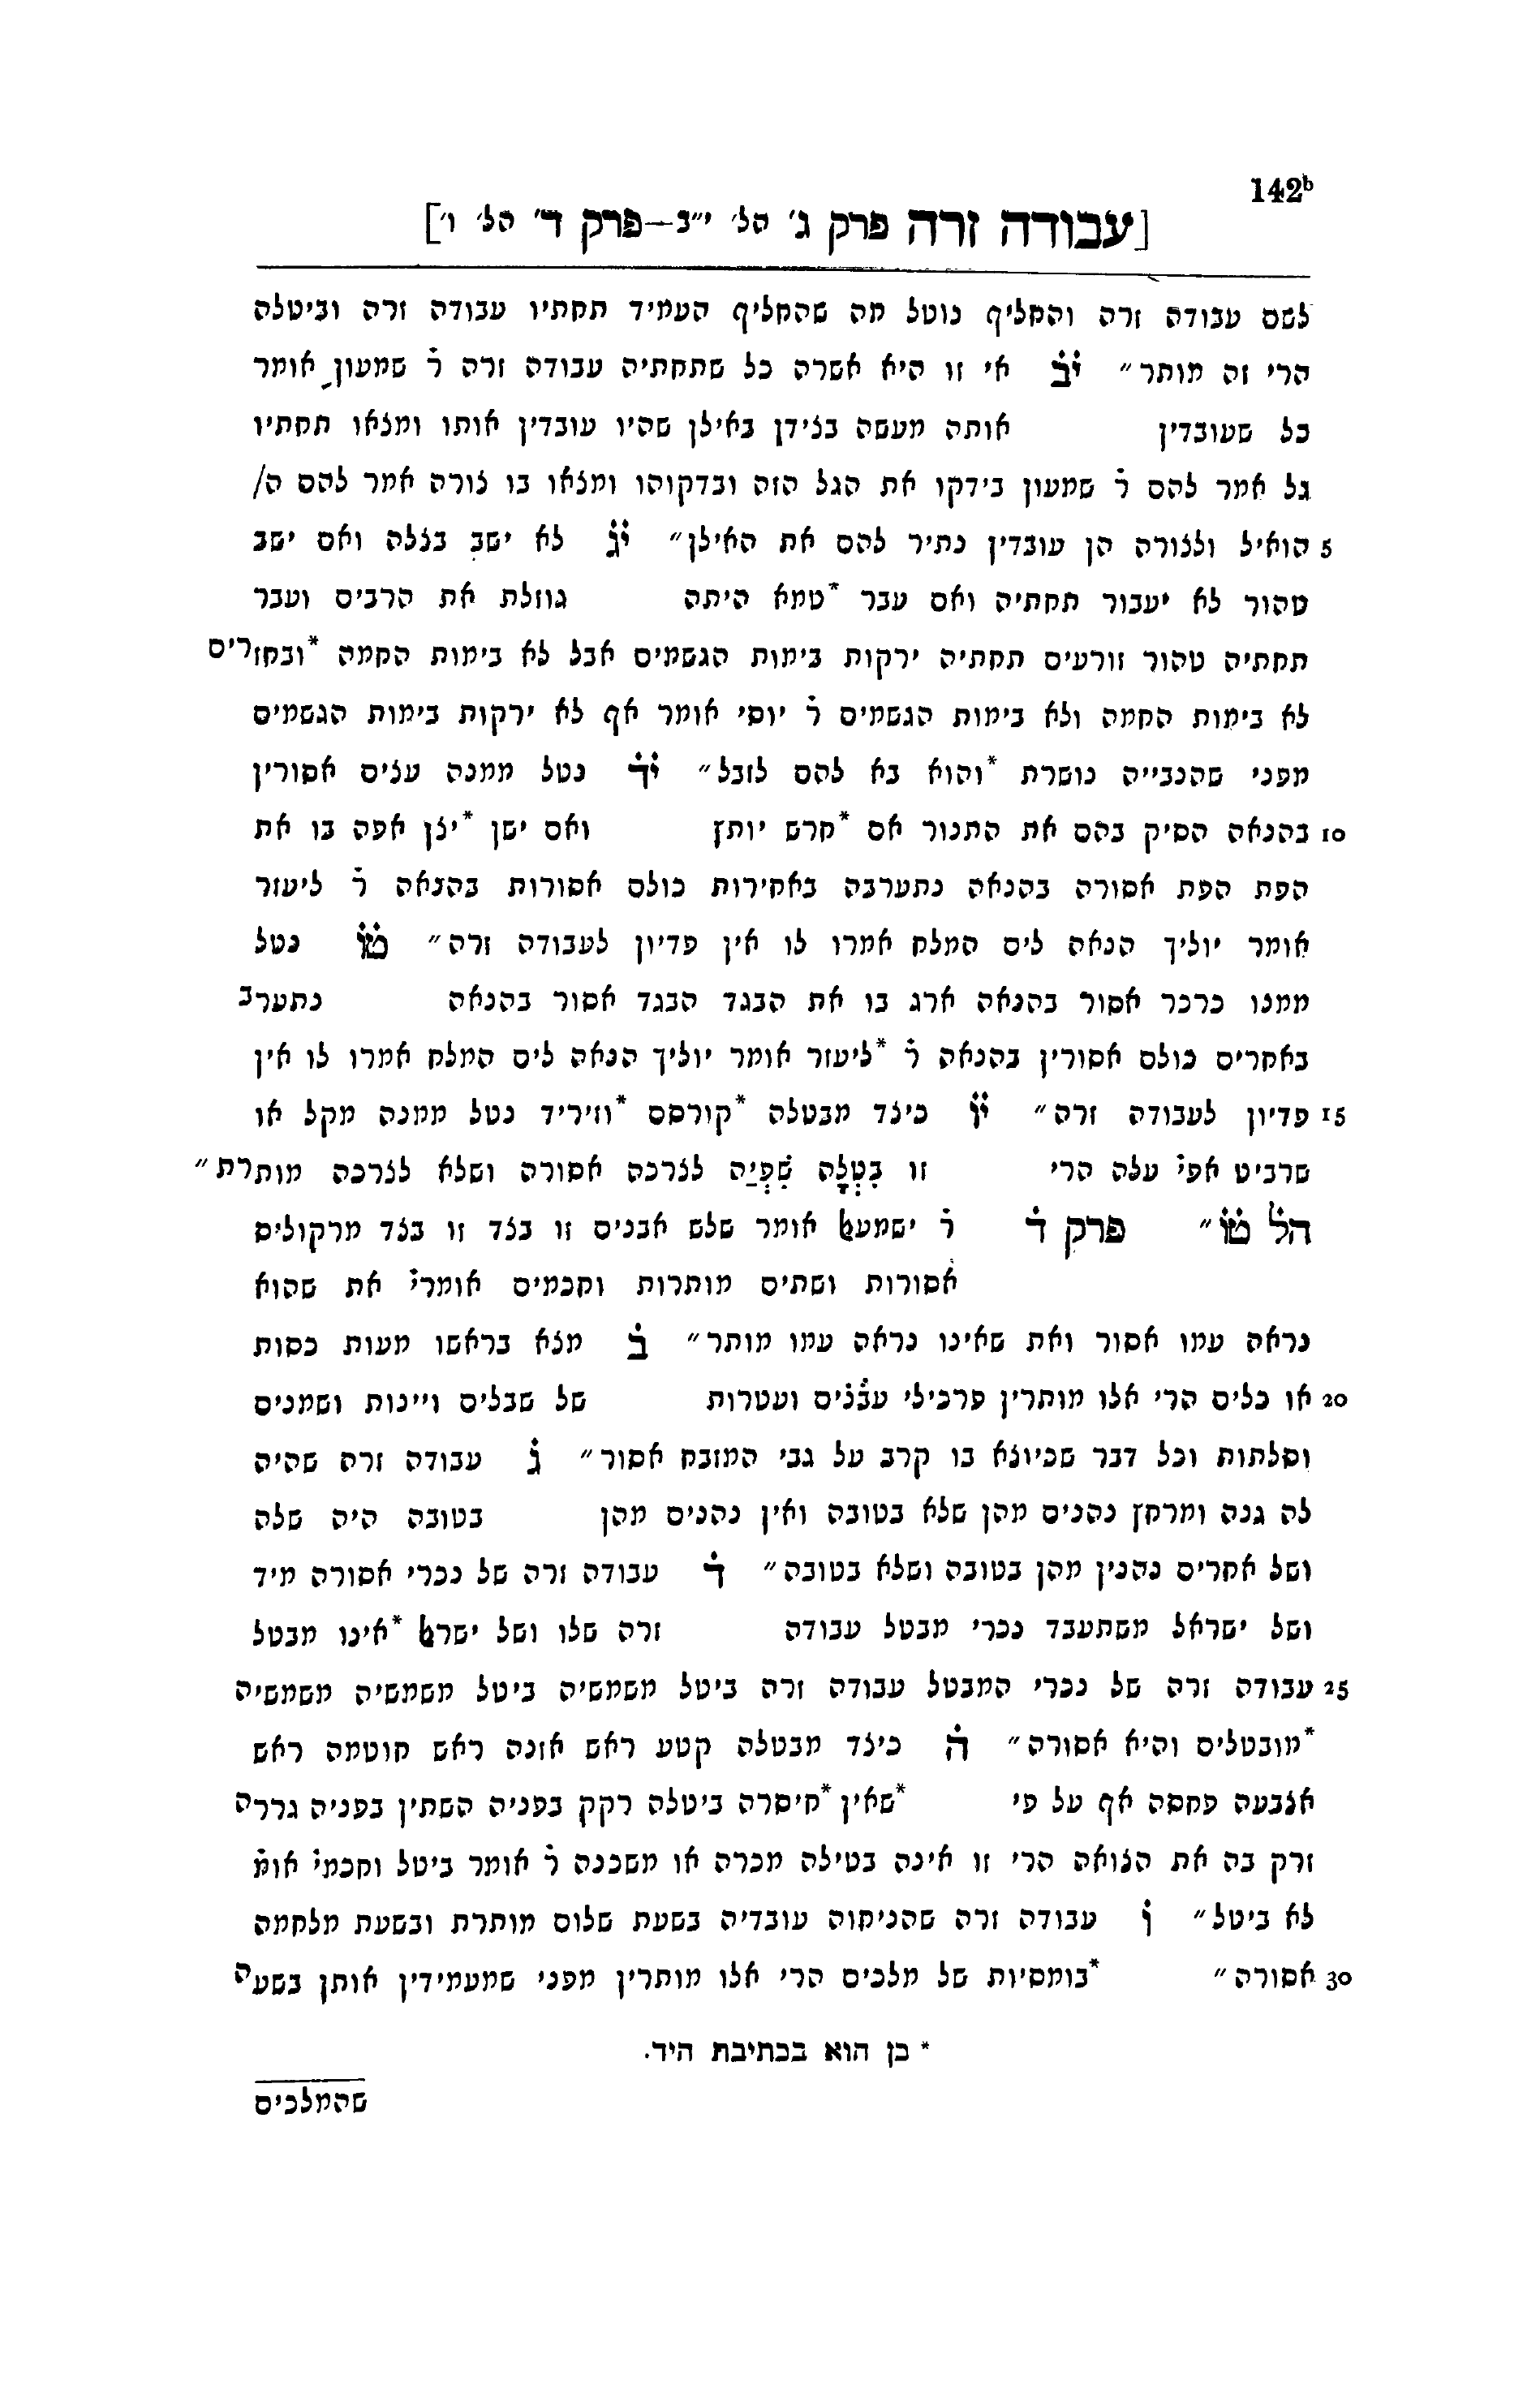 142b
[עבודה זרה פרק ג׳ הל׳ י״ב—פרק ד׳ הל׳ ו׳]
לשם עבודה זרה והחליף נוטל מה שהחליף העמיד תחתיו עבודה זרה וביטלה
הרי זה מותר״ יב אי זו היא אשרה כל שתחתיה עבודה זרה ר׳ שמעון אומר
כל שעובדין אותה מעשה בצידן באילן שהיו עובדין אותו ומצאו תחתיו
גל אמר להם ר׳ שמעון בידקו את הגל הזה ובדקוהו ומצאו בו צורה אמר להם ה/
5 הואיל ולצורה הן עובדין נתיר להם את האילן״ יג לא ישב בצלה ואם ישב
טהור לא יעבור תחתיה ואם עבר *טמא היתה גוזלת את הרבים ועבר
תחתיה טהור זורעים תחתיה ירקות בימות הגשמים אבל לא בימות החמה *ובחזרים
לא בימות החמה ולא בימות הגשמים ר׳ יוסי אומר אף לא ירקות בימות הגשמים
מפני שהנבייה נושרת *והוא בא להם לזבל״ יד נטל ממנה עצים אסורין
10 בהנאה הסיק בהם את התנור אם *חרש יותץ ואם ישן *יצן אפה בו את
הפת הפת אסורה בהנאה נתערבה באחירות כולם אסורות בהנאה ר׳ ליעזר
אומר יוליך הנאה לים המלח אמרו לו אין פדיון לעבודה זרה״ טו נטל
ממנו כרכר אסור בהנאה ארג בו את הבגד הבגד אסור בהנאה נתערב
באחרים כולם אסורין בהנאה ר׳ *ליעזר אומר יוליך הנאה לים המלח אמרו לו אין
15 פדיון לעבודה זרה״ יו כיצד מבטלה *קורסם *וזיריד נטל ממנה מקל או
שרביט אפי׳ עלה הרי זו בִּטְלָהּ שִׁפְּיַהּ לצרכה אסורה ושלא לצרכה מותרת״
הל׳ טו״ פרק ד׳ ר׳ ישמעאל אומר שלש אבנים זו בצד זו בצד מרקולים
אסורות ושתים מותרות וחכמים אומרי׳ את שהוא
נראה עמו אסור ואת שאינו נראה עמו מותר״ ב מצא בראשו מעות כסות
20 או כלים הרי אלו מותרין פרכילי ענבים ועטרות של שבלים ויינות ושמנים
וסלתות וכל דבר שכיוצא בו קרב על גבי המזבח אסור״ ג עבודה זרה שהיה
לה גנה ומרחץ נהנים מהן שלא בטובה ואין נהנים מהן בטובה היה שלה
ושל אחרים נהנין מהן בטובה ושלא בטובה״ ד עבודה זרה של נכרי אסורה מיד
ושל ישראל משתעבד נכרי מבטל עבודה זרה שלו ושל ישראל *אינו מבטל
25 עבודה זרה של נכרי המבטל עבודה זרה ביטל משמשיה ביטל משמשיה משמשיה
*מובטלים והיא אסורה״ ה כיצד מבטלה קטע ראש אזנה ראש חוטמה ראש
אצבעה פחסה אף על פי *שאין *חיסרה ביטלה רקק בפניה השתין בפניה גררה
זרק בה את הצואה הרי זו אינה בטילה מכרה או משכנה ר׳ אומר ביטל וחכמי׳ אומ׳
לא ביטל״ ו עבודה זרה שהניחוה עובדיה בשעת שלום מותרת ובשעת מלחמה
30 אסורה״ *בומסיות של מלכים הרי אלו מותרין מפני שמעמידין אותן בשעה
* כן הוא בכתיבת היד.
שהמלכים